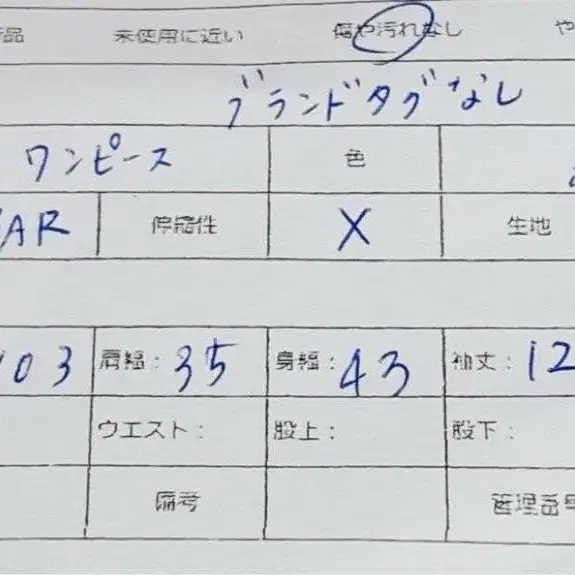 品 未使用に近い 傷や汚れなし や
ブランドタグなし
ワンピース 色
AR 伸縮性 X 生地
103 肩幅: 35 身幅: 43 袖丈: 12
ウエスト: 股上: 股下:
備考 管理番号